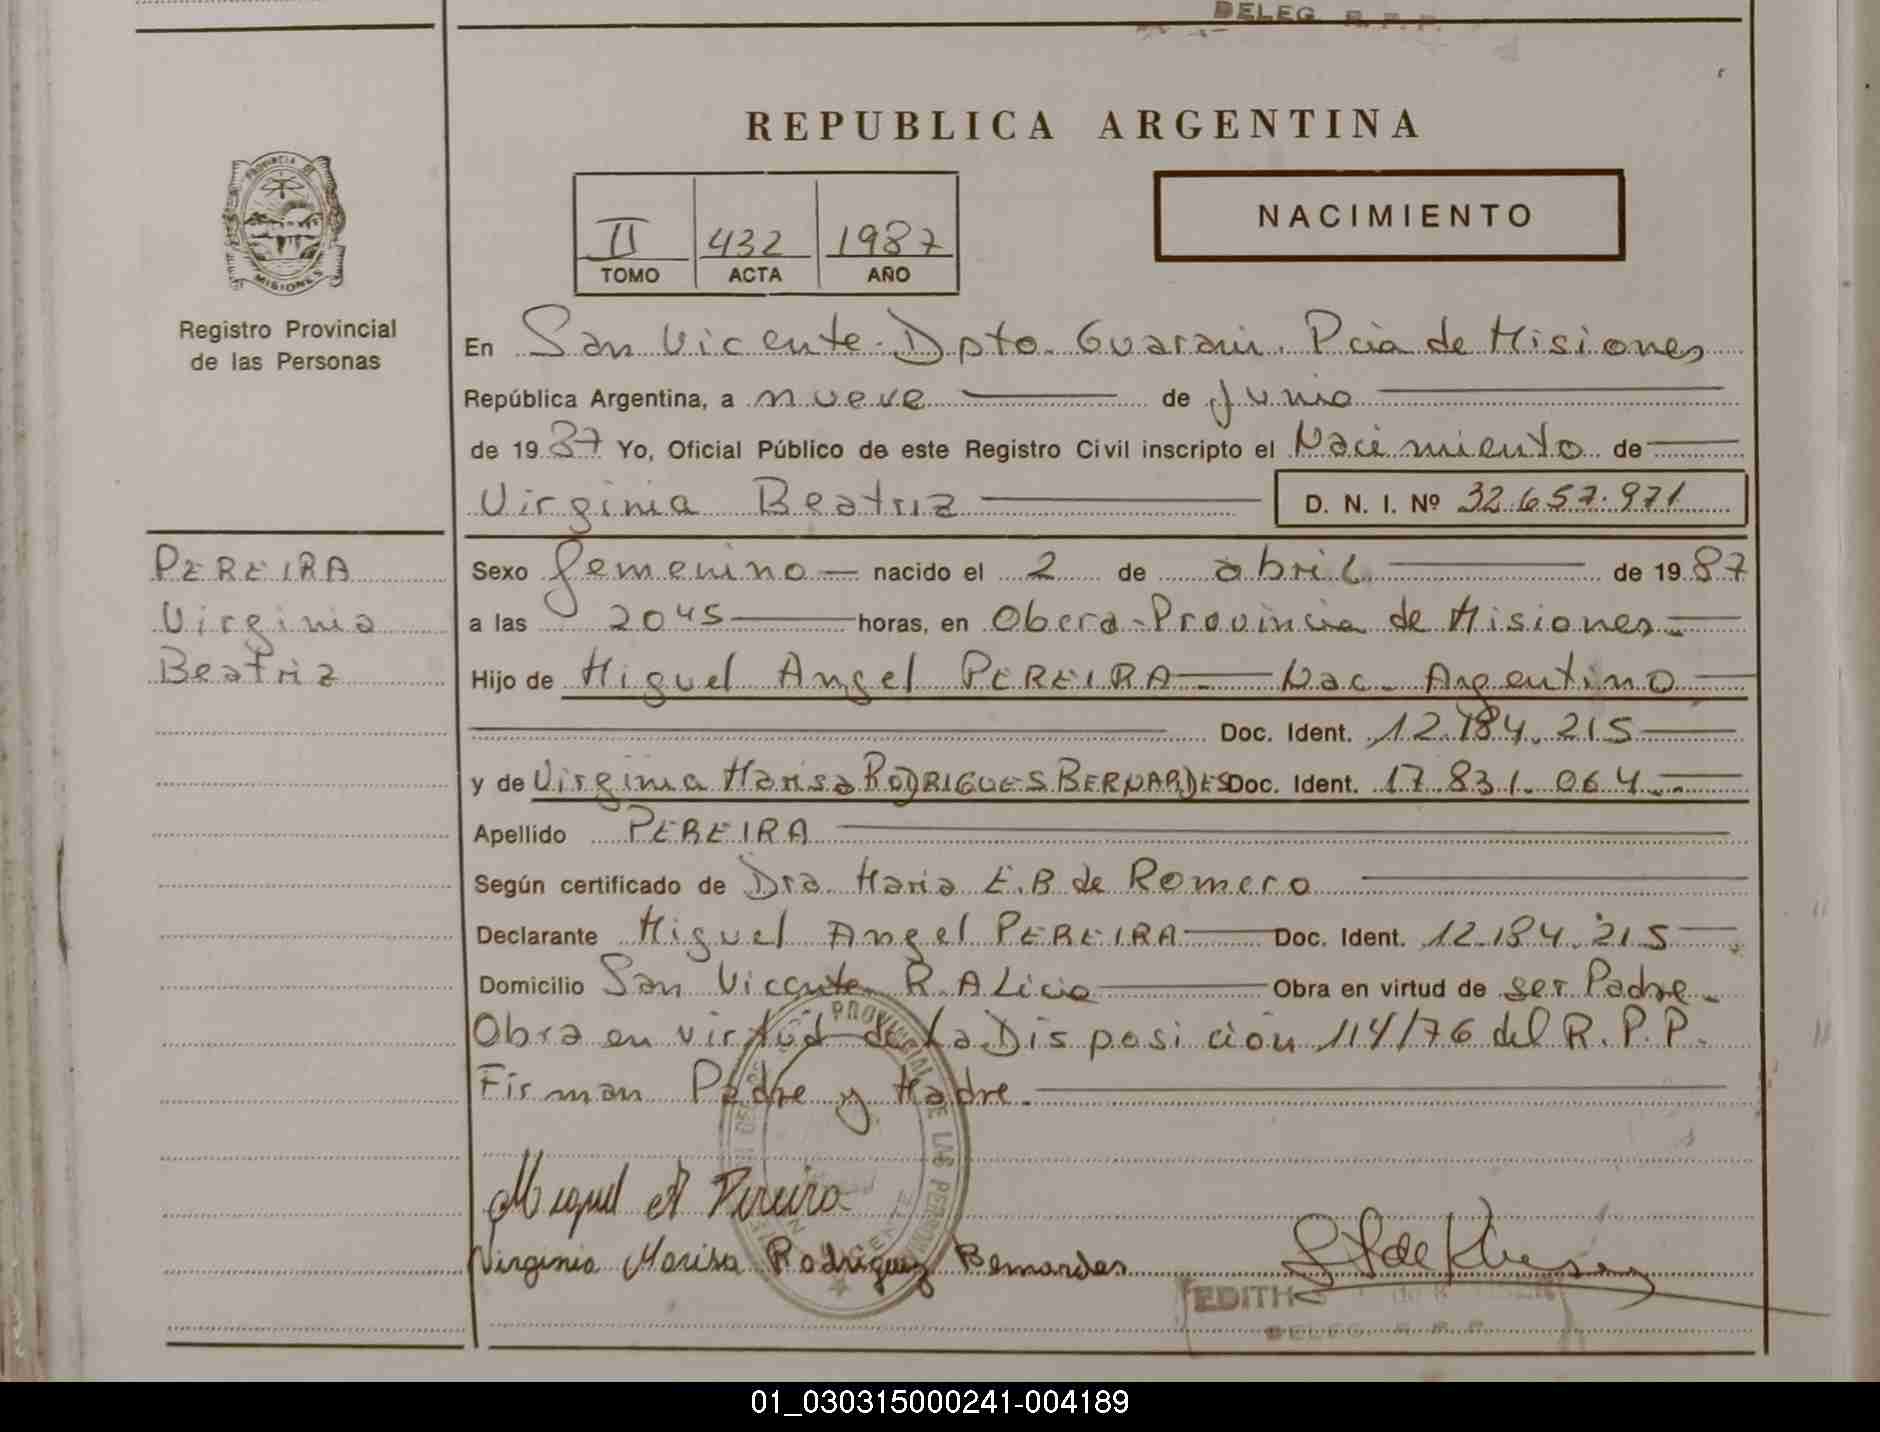 DELEG. R. P. P.
REPUBLICA ARGENTINA
PROVINCIA DE
MISIONES
II 432 1987
TOMO ACTA AÑO
NACIMIENTO
Registro Provincial
de las Personas
En San Vicente. Dpto. Guarani. Pcia de Misiones
República Argentina, a nueve de Junio
de 1987 Yo, Oficial Público de este Registro Civil inscripto el Nacimiento de
Virginia Beatriz D. N. I. Nº 32.657.971
PEREIRA
Virginia
Beatriz
Sexo femenino nacido el 2 de abril de 1987
a las 2045 horas, en Obera-Provincia de Misiones
Hijo de Miguel Angel PEREIRA Nac. Argentino
Doc. Ident. 12.184.215
y de Virginia Marisa RODRIGUES BERNARDES Doc. Ident. 17.831.064
Apellido PEREIRA
Según certificado de Dra. Maria E.B de Romero
Declarante Miguel Angel PEREIRA Doc. Ident. 12.184.215
Domicilio San Vicente R. Alicia Obra en virtud de ser Padre
Obra en virtud de La Disposición 114/76 del R.P.P.
Firman Padre y Madre.
Miguel A Pereira
Virginia Marisa Rodriguez Bernardes
EDITH
DELEG. R. P. P.
01_030315000241-004189